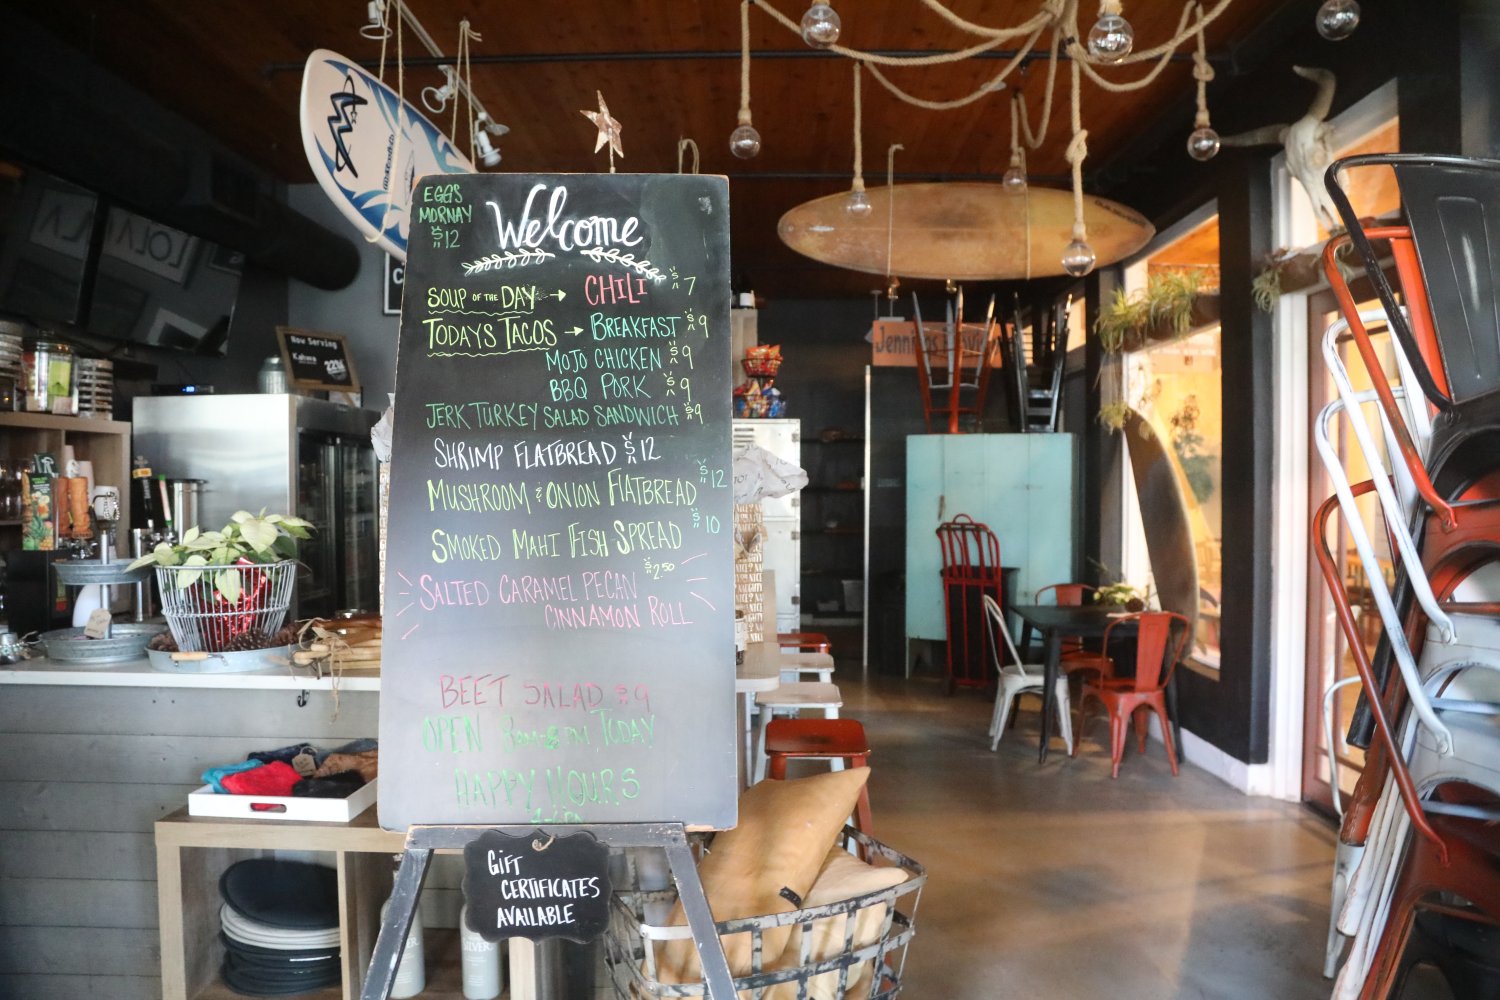 EGGS
MORNAY
$12
Welcome
SOUP OF THE DAY → CHILI $7
TODAYS TACOS → BREAKFAST $9
MOJO CHICKEN $9
BBQ PORK $9
JERK TURKEY SALAD SANDWICH $9
SHRIMP FLATBREAD $12
MUSHROOM & ONION FLATBREAD $12
SMOKED MAHI FISH SPREAD $10
SALTED CARAMEL PECAN $2.50
CINNAMON ROLL
BEET SALAD $9
OPEN 8AM-8PM TODAY
HAPPY HOURS
4-6PM
GIFT
CERTIFICATES
AVAILABLE
Now Serving
Kahwa